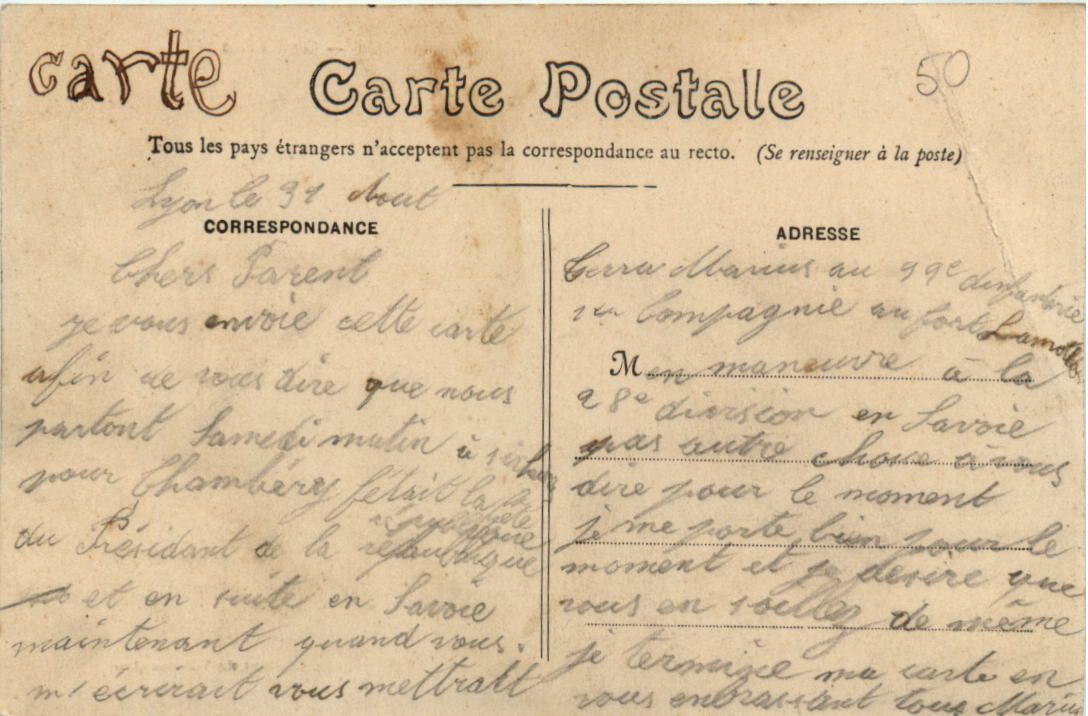 carte
Carte Postale
50
Tous les pays étrangers n'acceptent pas la correspondance au recto. (Se renseigner à la poste)
Lyon le 31 Aout
CORRESPONDANCE
Chers Parent
je vous envoie cette carte
afin de vous dire que nous
partont Samedi matin à six heures
pour Chambéry
du Présidant de la republique
et en suite en Savoie
maintenant quand vous
m'écrirait vous mettrait
ADRESSE
Marius au 99e d'infanterie
Compagnie au fort Lamothe
M en maneuvre à la
28e division en Savoie
pas autre chose à vous
dire pour le moment
je me porte bien pour le
moment et je desire que
vous en soillez de même
je termine ma carte en
vous embrassant tous Marius